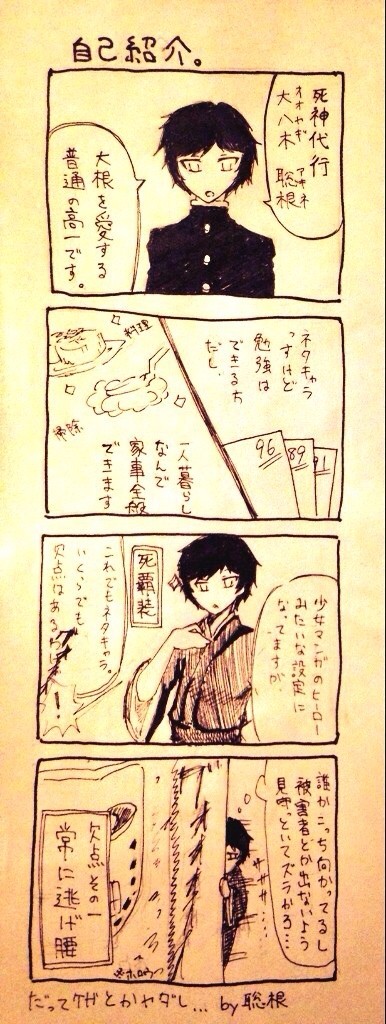 自己紹介。
死神代行
オオヤギ アキネ
大八木 聡根
大根を愛する
普通の高一です。
ネタキャラ
っすけど
勉強は
できるち
だし、
96
89
91
料理
掃除
一人暮らし
なんで
家事全般
できます
少女マンガのヒーロー
みたいな設定に
なってますが、
死覇装
これでもネタキャラ。
いくらでも
欠点はあるわけ
!
誰かこっち向かってるし
被害者とか出ないよう
見守っといてズラかろ…
ササササ…
欠点その一
常に逃げ腰
だってケガとかヤダし… by 聡根